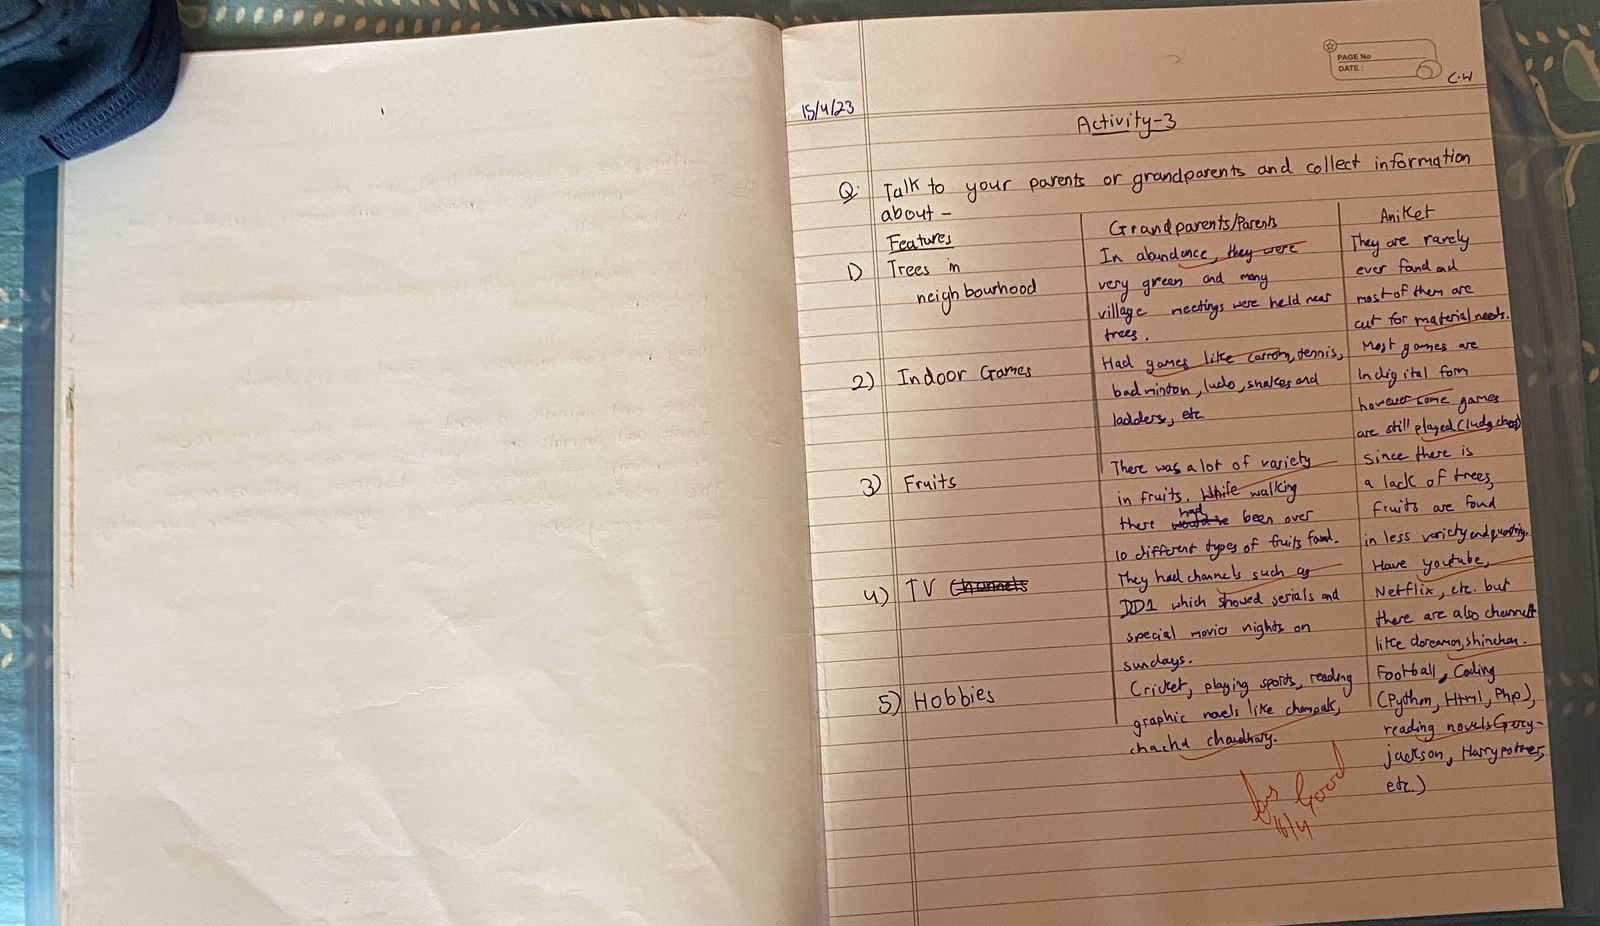 PAGE No
DATE :
C.W
15/4/23
Activity-3
Q. Talk to your parents or grandparents and collect information
about -
Features
Grandparents/Parents
Aniket
1) Trees in
neighbourhood
In abundance, they were
very green and many
village meetings were held near
trees.
They are rarely
ever fond and
most of them are
cut for material needs.
2) Indoor Games
Had games like carrom, tennis,
badminton, ludo, snakes and
ladders, etc.
Most games are
in digital form
however some games
are still played (ludo, chess)
3) Fruits
There was a lot of variety
in fruits. While walking
there had been over
10 different types of fruits fond.
Since there is
a lack of trees,
fruits are fond
in less variety and
4) TV Channels
They had channels such as
DD1 which showed serials and
special movie nights on
sundays.
Have youtube,
Netflix, etc. but
there are also channels
like doreamon, shinchan.
5) Hobbies
Cricket, playing sports, reading
graphic novels like champak,
chacha chaudhary.
Football, Coding
(Python, Html, Php),
reading novels
jackson, Harry potter,
etc.)
Good
16/4